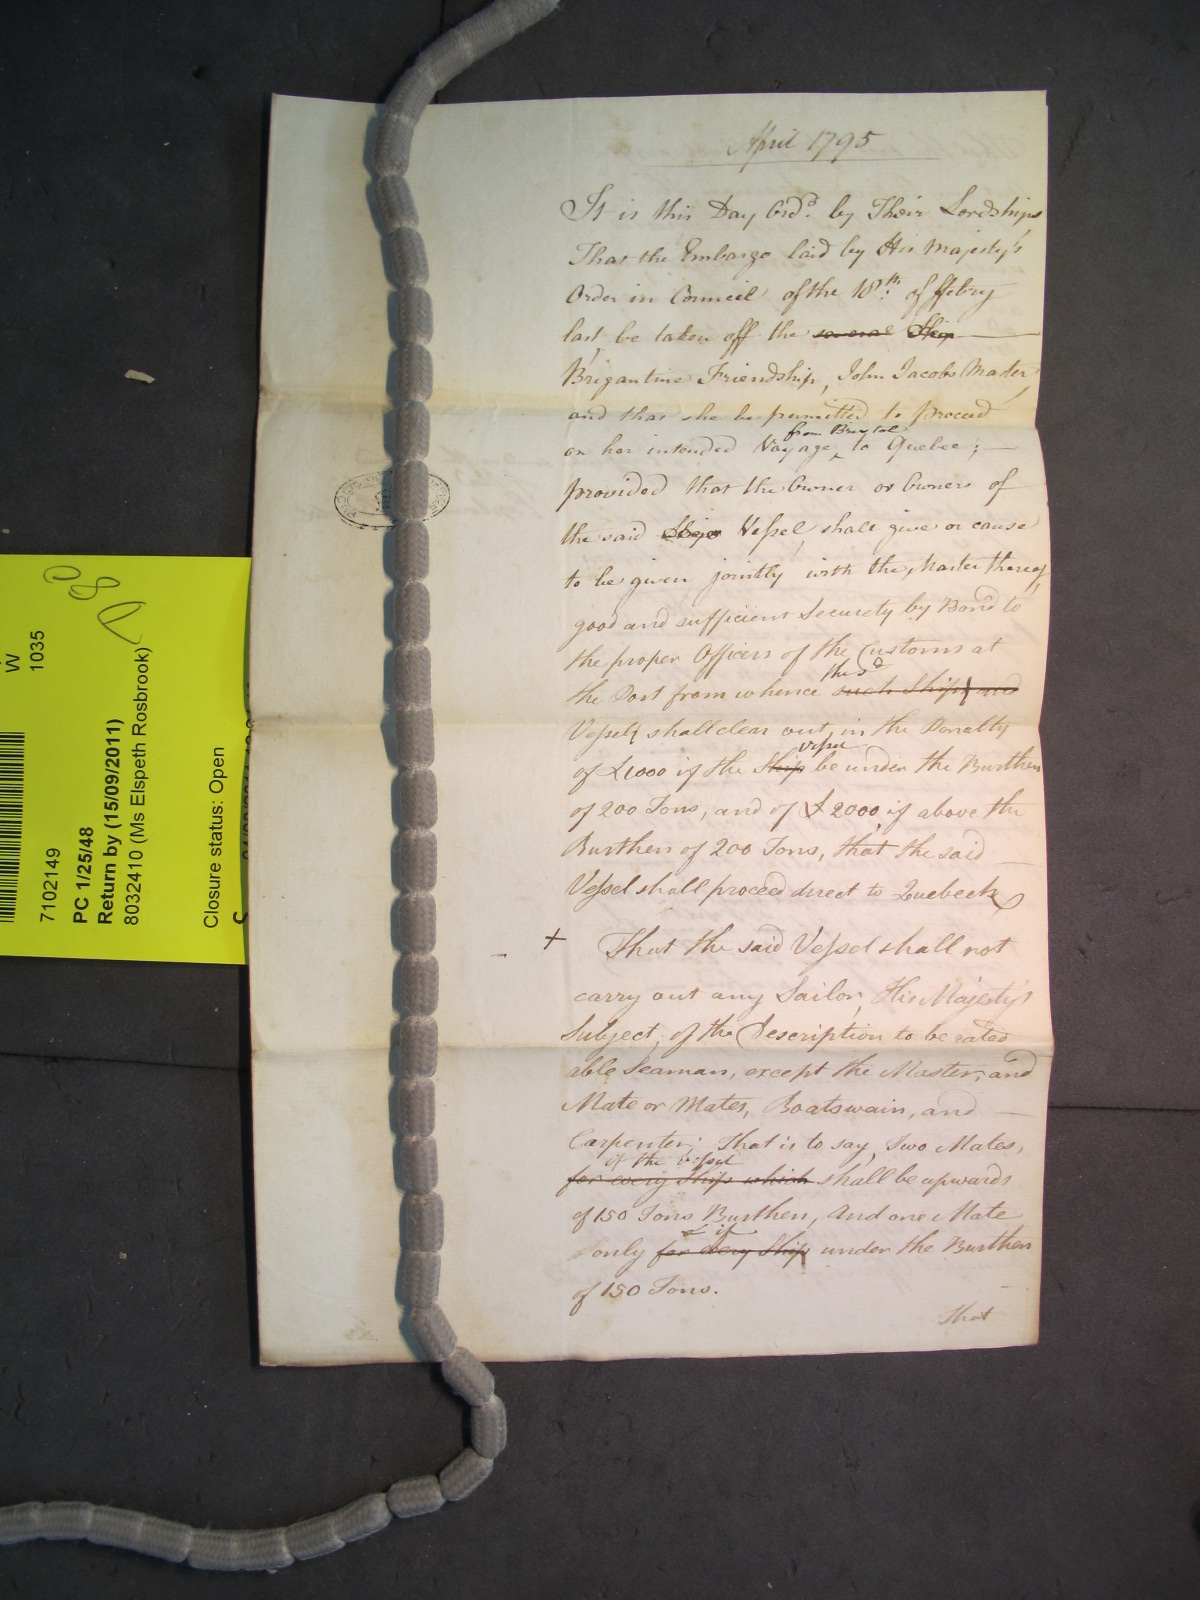 April 1795
It is this Day Ord.d by Their Lordships
That the Embargo laid by His Majesty's
Order in Council of the 18th. of ffebry
last be taken off the several Ship
Brigantine Friendship, John Jacobs Master,
and that she be permitted to proceed
on her intended Voyage, from Bristol to Quebec;
provided that the Owner or Owners of
the said Ship or Vessel, shall give or cause
to be given jointly with the Master thereof,
good and sufficient Security by Bond to
the proper Officers of the Customs at
the Port from whence such Ships and the sd
Vessel shall clear out, in the Penalty
of £1000 if the Ship vessel be under the Burthen
of 200 Tons, and of £2000 if above the
Burthen of 200 Tons, that the said
Vessel shall proceed direct to Quebeck
+ That the said Vessel shall not
carry out any Sailor, His Majesty's
Subject, of the Description to be rated
able Seaman, except the Master, and
Mate or Mates, Boatswain, and
Carpenter; That is to say, Two Mates,
for every Ship which if the vessel shall be upwards
of 150 Tons Burthen, And one Mate
only for every Ship & if under the Burthen
of 150 Tons.
That
W
1035
7102149
PC 1/25/48
Return by (15/09/2011)
8032410 (Ms Elspeth Rosbrook)
Closure status: Open